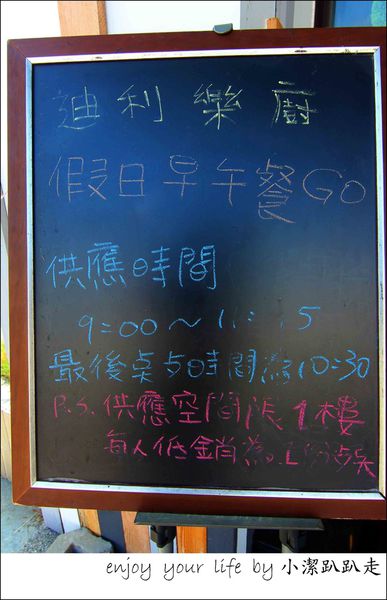 迪利樂廚
假日早午餐Go
供應時間
9:00～11: 15
最後桌 時間為10:30
P.S. 供應空間限1樓
每人低銷為1份
enjoy your life by 小潔趴趴走